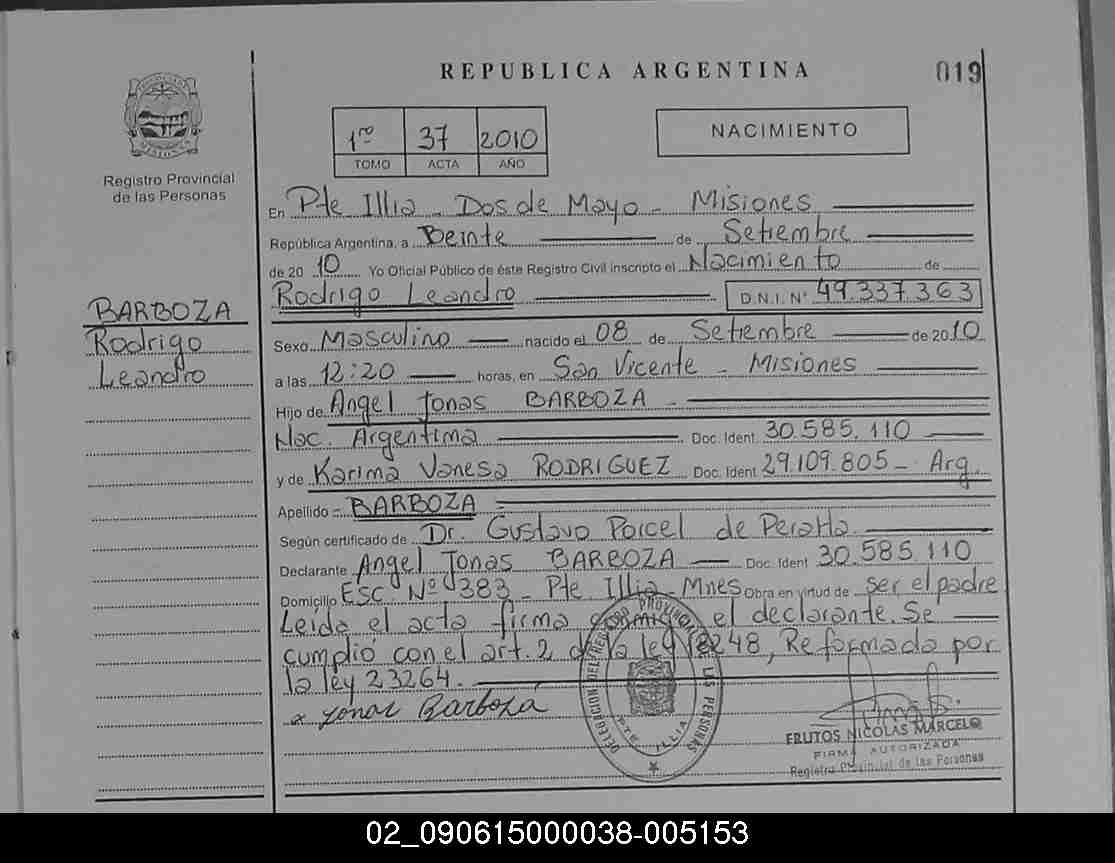 REPUBLICA ARGENTINA
019
1ro 37 2010
TOMO ACTA AÑO
NACIMIENTO
Registro Provincial
de las Personas
En Pte Illia - Dos de Mayo - Misiones
República Argentina, a Beinte de Setiembre
de 20 10 Yo Oficial Público de éste Registro Civil inscripto el Nacimiento de
Rodrigo Leandro D.N.I. N° 49.337.363
BARBOZA
Rodrigo
Leandro
Sexo Masculino nacido el 08 de Setiembre de 2010
a las 12:20 horas, en San Vicente - Misiones
Hijo de Angel Jonas BARBOZA -
Nac. Argentina Doc. Ident. 30.585.110
y de Karina Vanesa RODRIGUEZ Doc. Ident 29.109.805 - Arg.
Apellido - BARBOZA
Según certificado de Dr. Gustavo Porcel de Peralta
Declarante Angel Jonas BARBOZA Doc. Ident 30.585.110
Domicilio ESC. Nº 383 - Pte. Illia - Mnes Obra en virtud de ser el padre
Leída el acta firma conmigo el declarante. Se
cumplió con el art. 2 de la ley 18248, Reformada por
la ley 23264.
x Jonas Barboza
DELEGACION DEL REGISTRO PROVINCIAL DE LAS PERSONAS
PTE ILLIA
FRUTOS NICOLAS MARCELO
FIRMA AUTORIZADA
Registro Provincial de las Personas
02_090615000038-005153